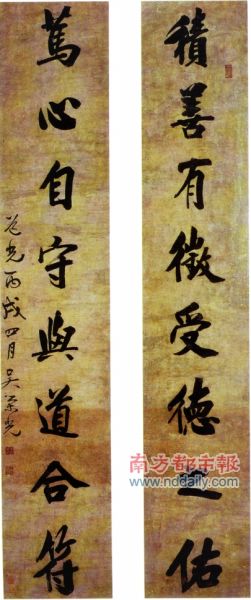 積善有徵受德之佑
篤心自守與道合符
道光丙戌四月吴荣光
南方都市報
www.nddaily.com